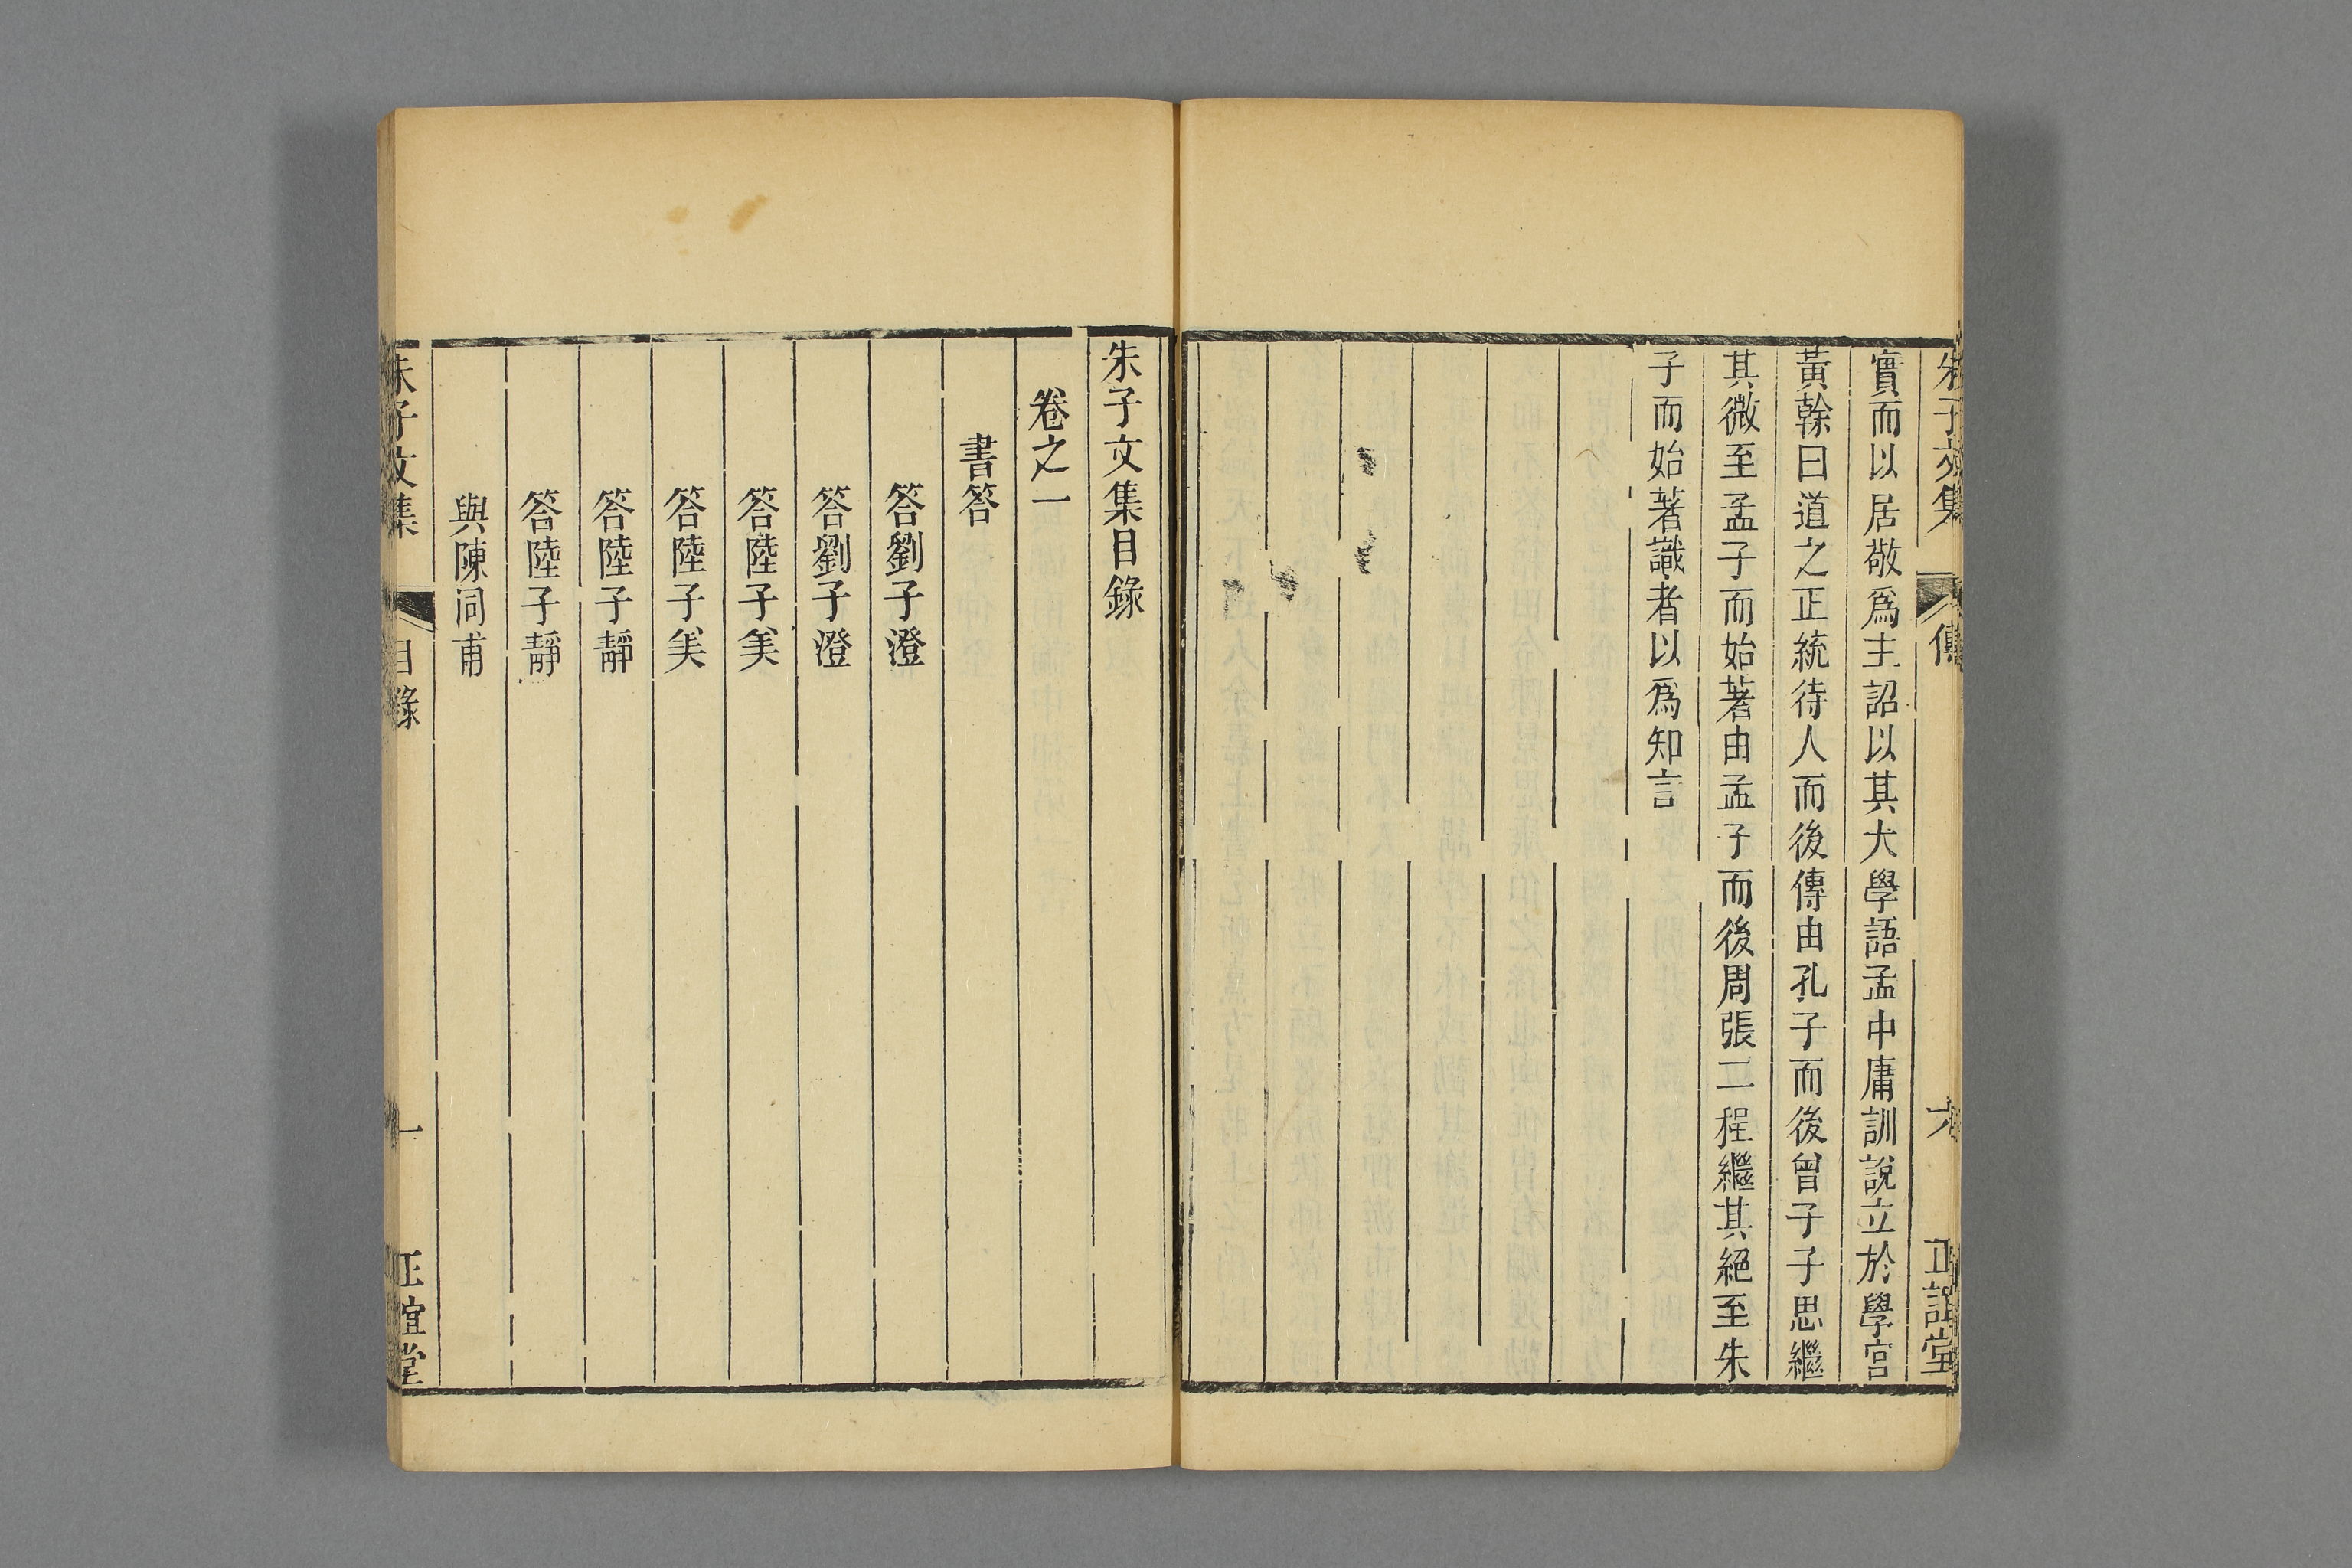 朱子文集
傳
六
正誼堂
實而以居敬爲主詔以其大學語孟中庸訓說立於學宮
黃榦曰道之正統待人而後傳由孔子而後曾子子思繼
其微至孟子而始著由孟子而後周張二程繼其絕至朱
子而始著識者以爲知言
朱子文集目錄
卷之一
書答
答劉子澄
答劉子澄
答陸子美
答陸子美
答陸子靜
答陸子靜
與陳同甫
朱子文集
目錄
一
正誼堂